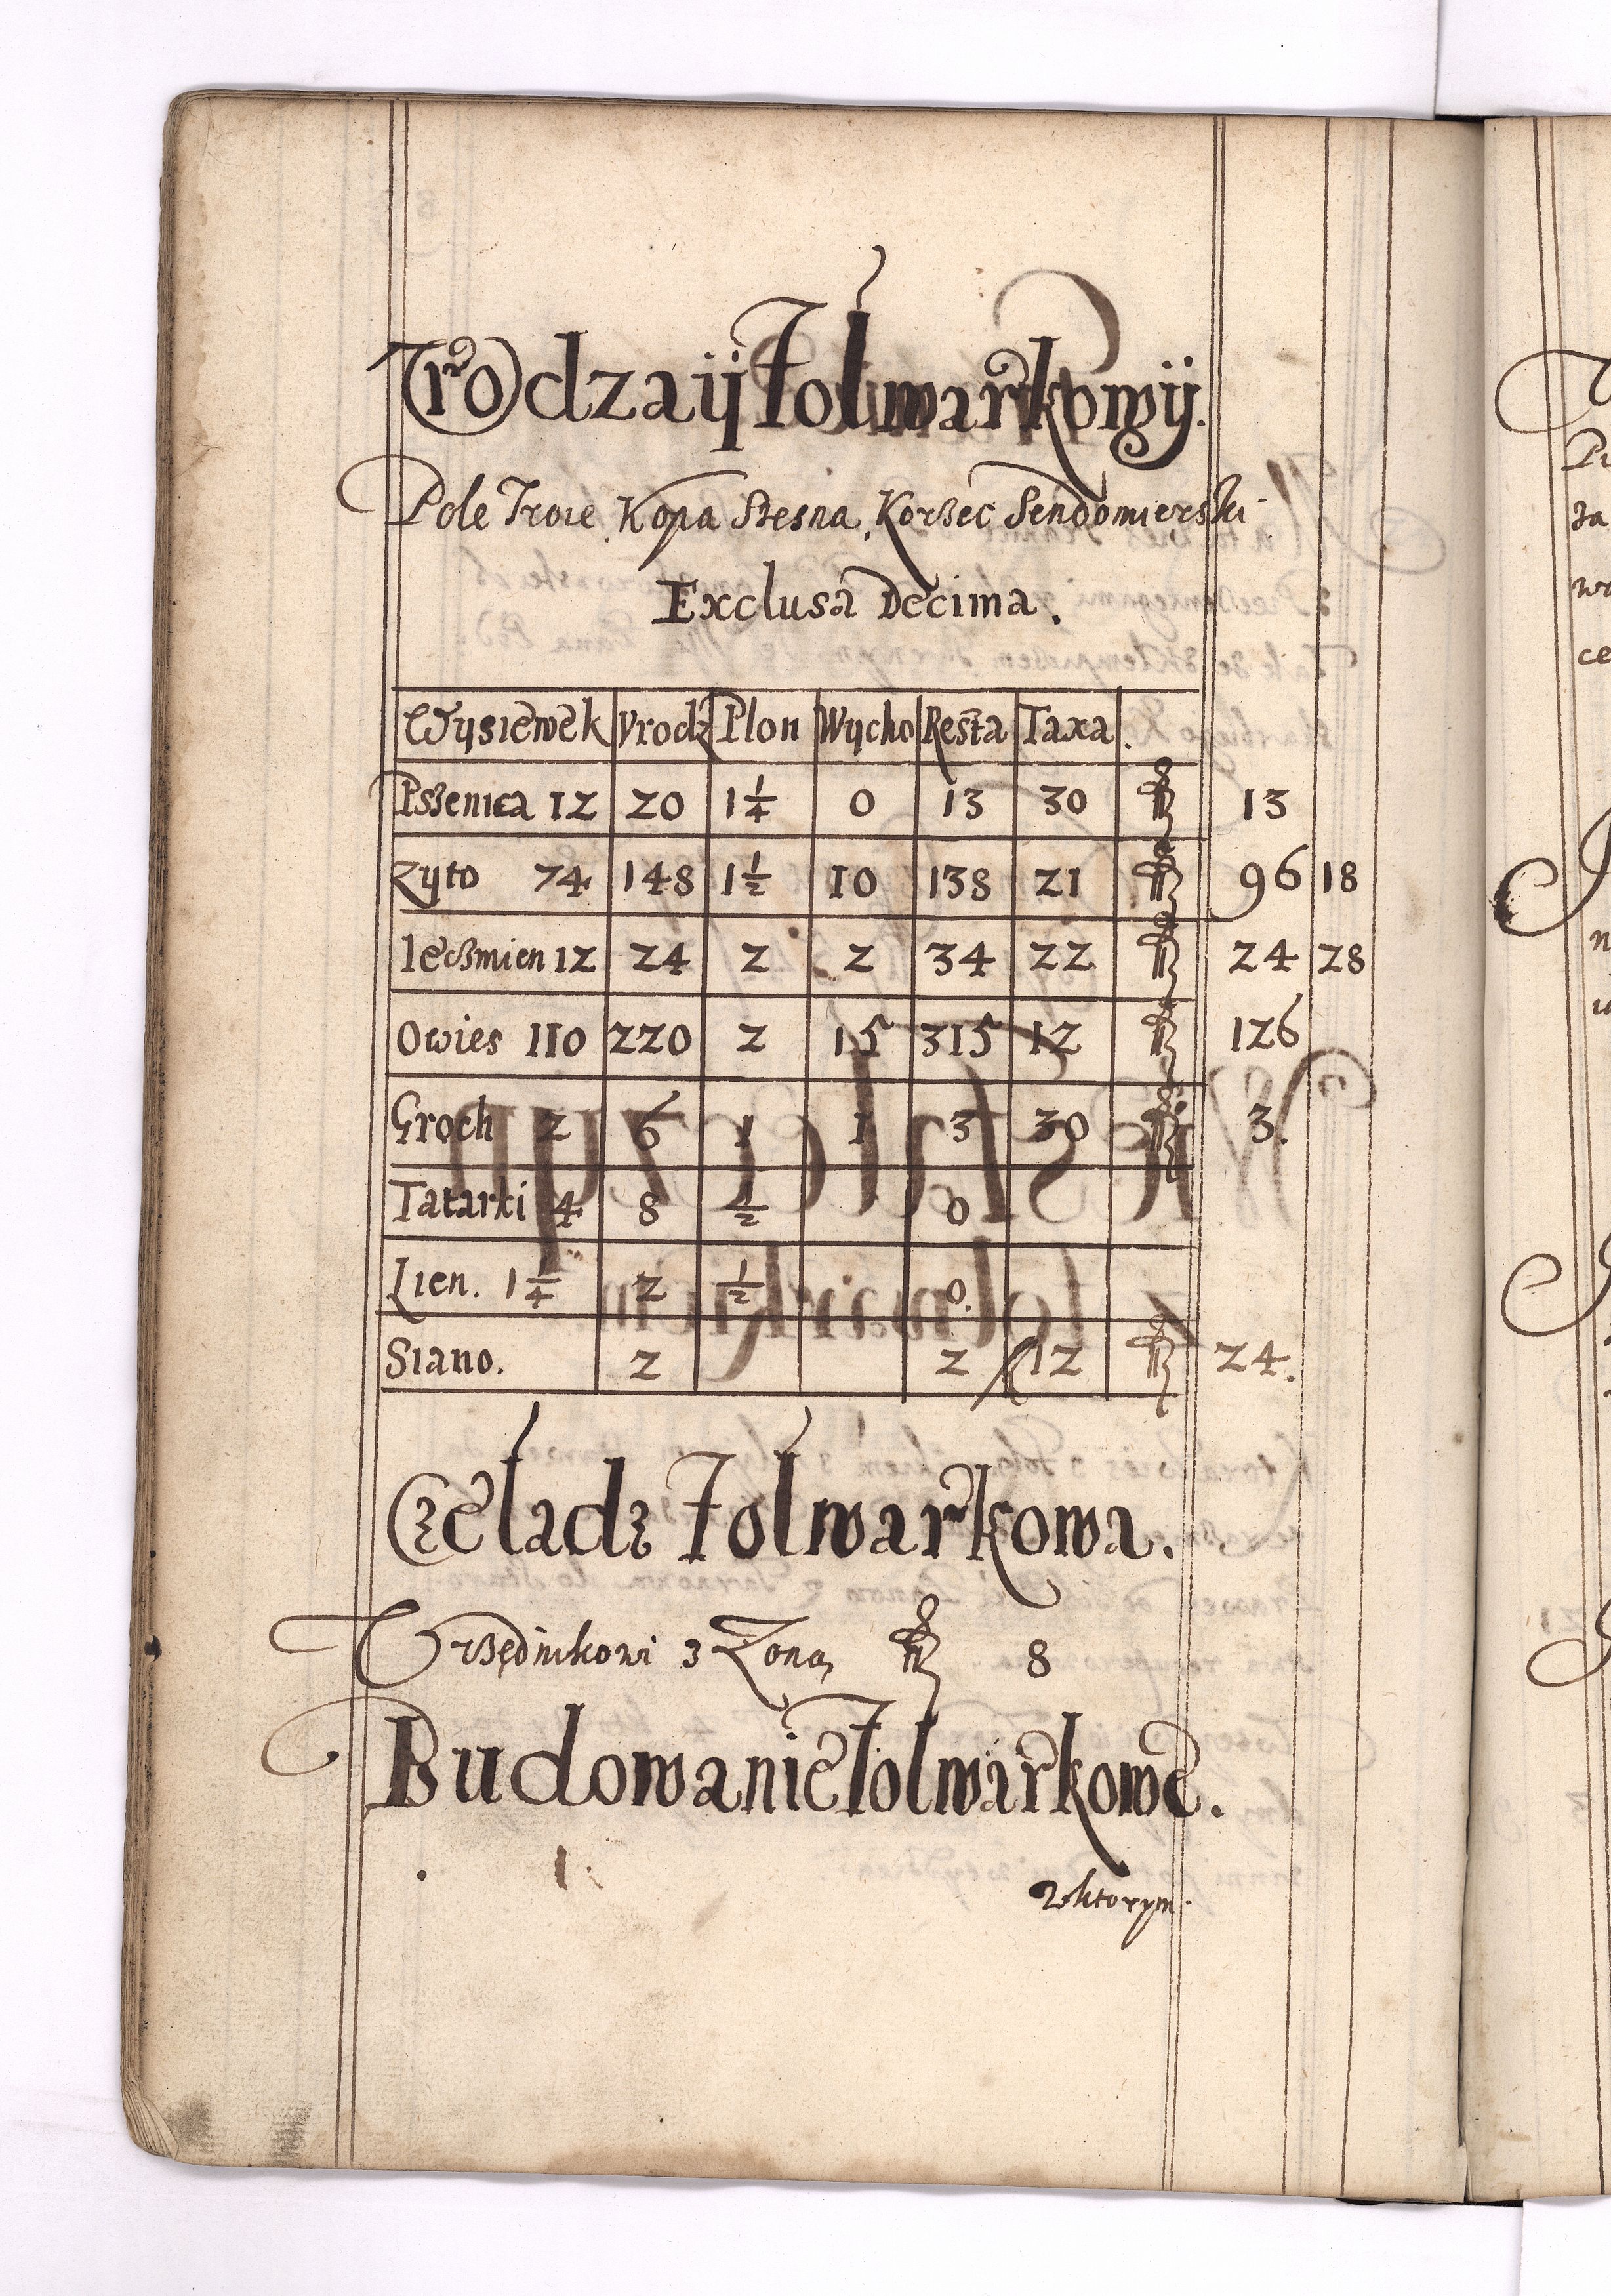 Vrodzaij folwarkowij.
Pole Troie, Kopa Szesna, Korzec Sendomierski
Exclusa Decima.
Wysiewek Vrodz Plon Wycho Resta Taxa.
Pszenica 12 20 1 1/4 0 13 30 fl 13
Zyto 74 148 1 1/2 10 138 21 fl 96 18
Ieczmien 12 24 2 2 34 22 fl 24 28
Owies 110 220 2 15 315 12 fl 126
Groch 2 6 1 1 3 30 fl 3.
Tatarki 4 8 1/2 0
Lien. 1 1/4 2 1/2 0.
Siano. 2 2 12 fl 24.
Czeladz folwarkowa.
Vrzędnikowi z Zoną fl 8
Budowanie folwarkowe.
Wktorym.